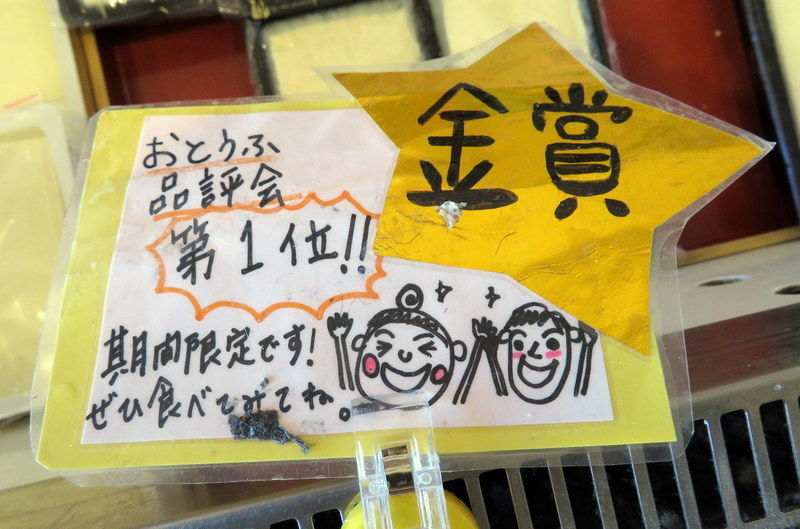 金賞
おとうふ
品評会
第1位!!
期間限定です!
ぜひ食べてみてね。